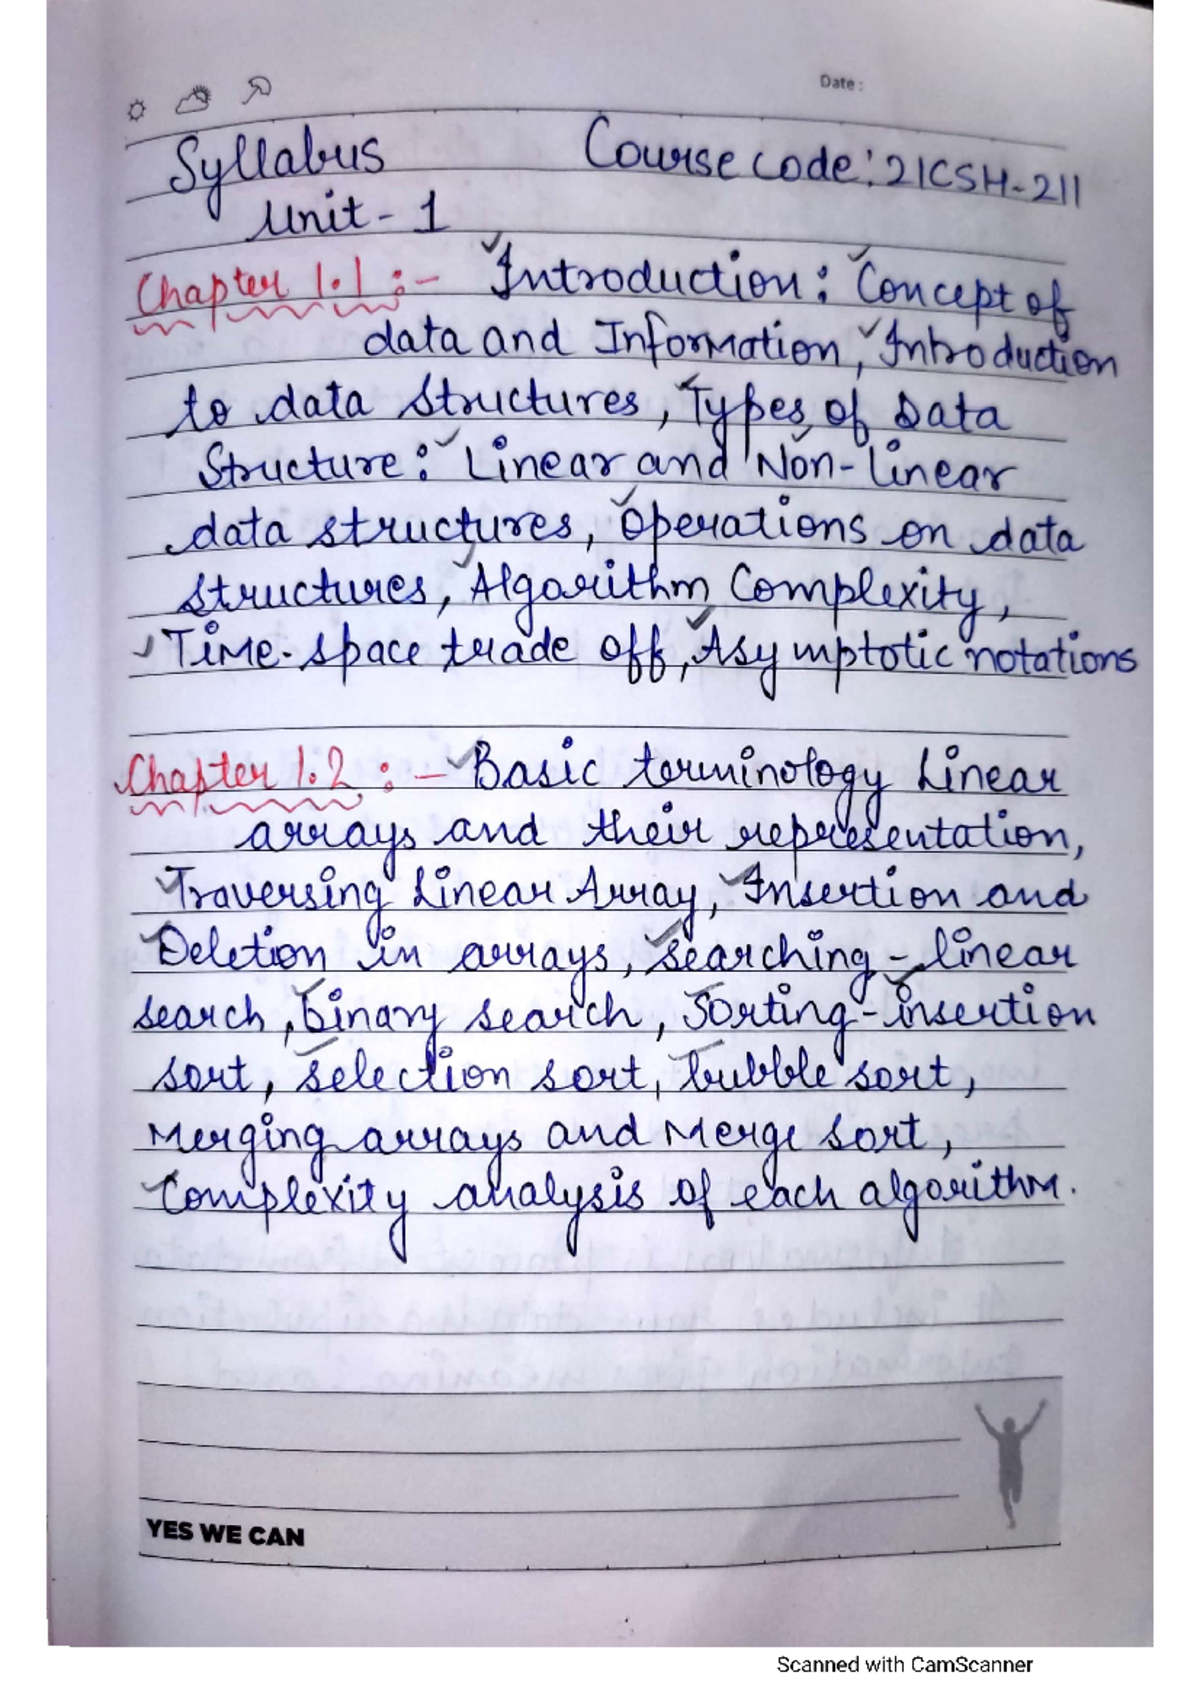 Date :
Syllabus Course code: 21CSH-211
Unit - 1
Chapter 1.1 :- Introduction: Concept of
data and Information, Introduction
to data structures, Types of Data
Structure: Linear and Non-linear
data structures, Operations on data
structures, Algorithm Complexity,
Time-space trade off, Asymptotic notations
Chapter 1.2 :- Basic terminology Linear
arrays and their representation,
Traversing Linear Array, Insertion and
Deletion in arrays, searching - linear
search, binary search, Sorting - insertion
sort, selection sort, bubble sort,
Merging arrays and Merge sort,
Complexity analysis of each algorithm.
YES WE CAN
Scanned with CamScanner